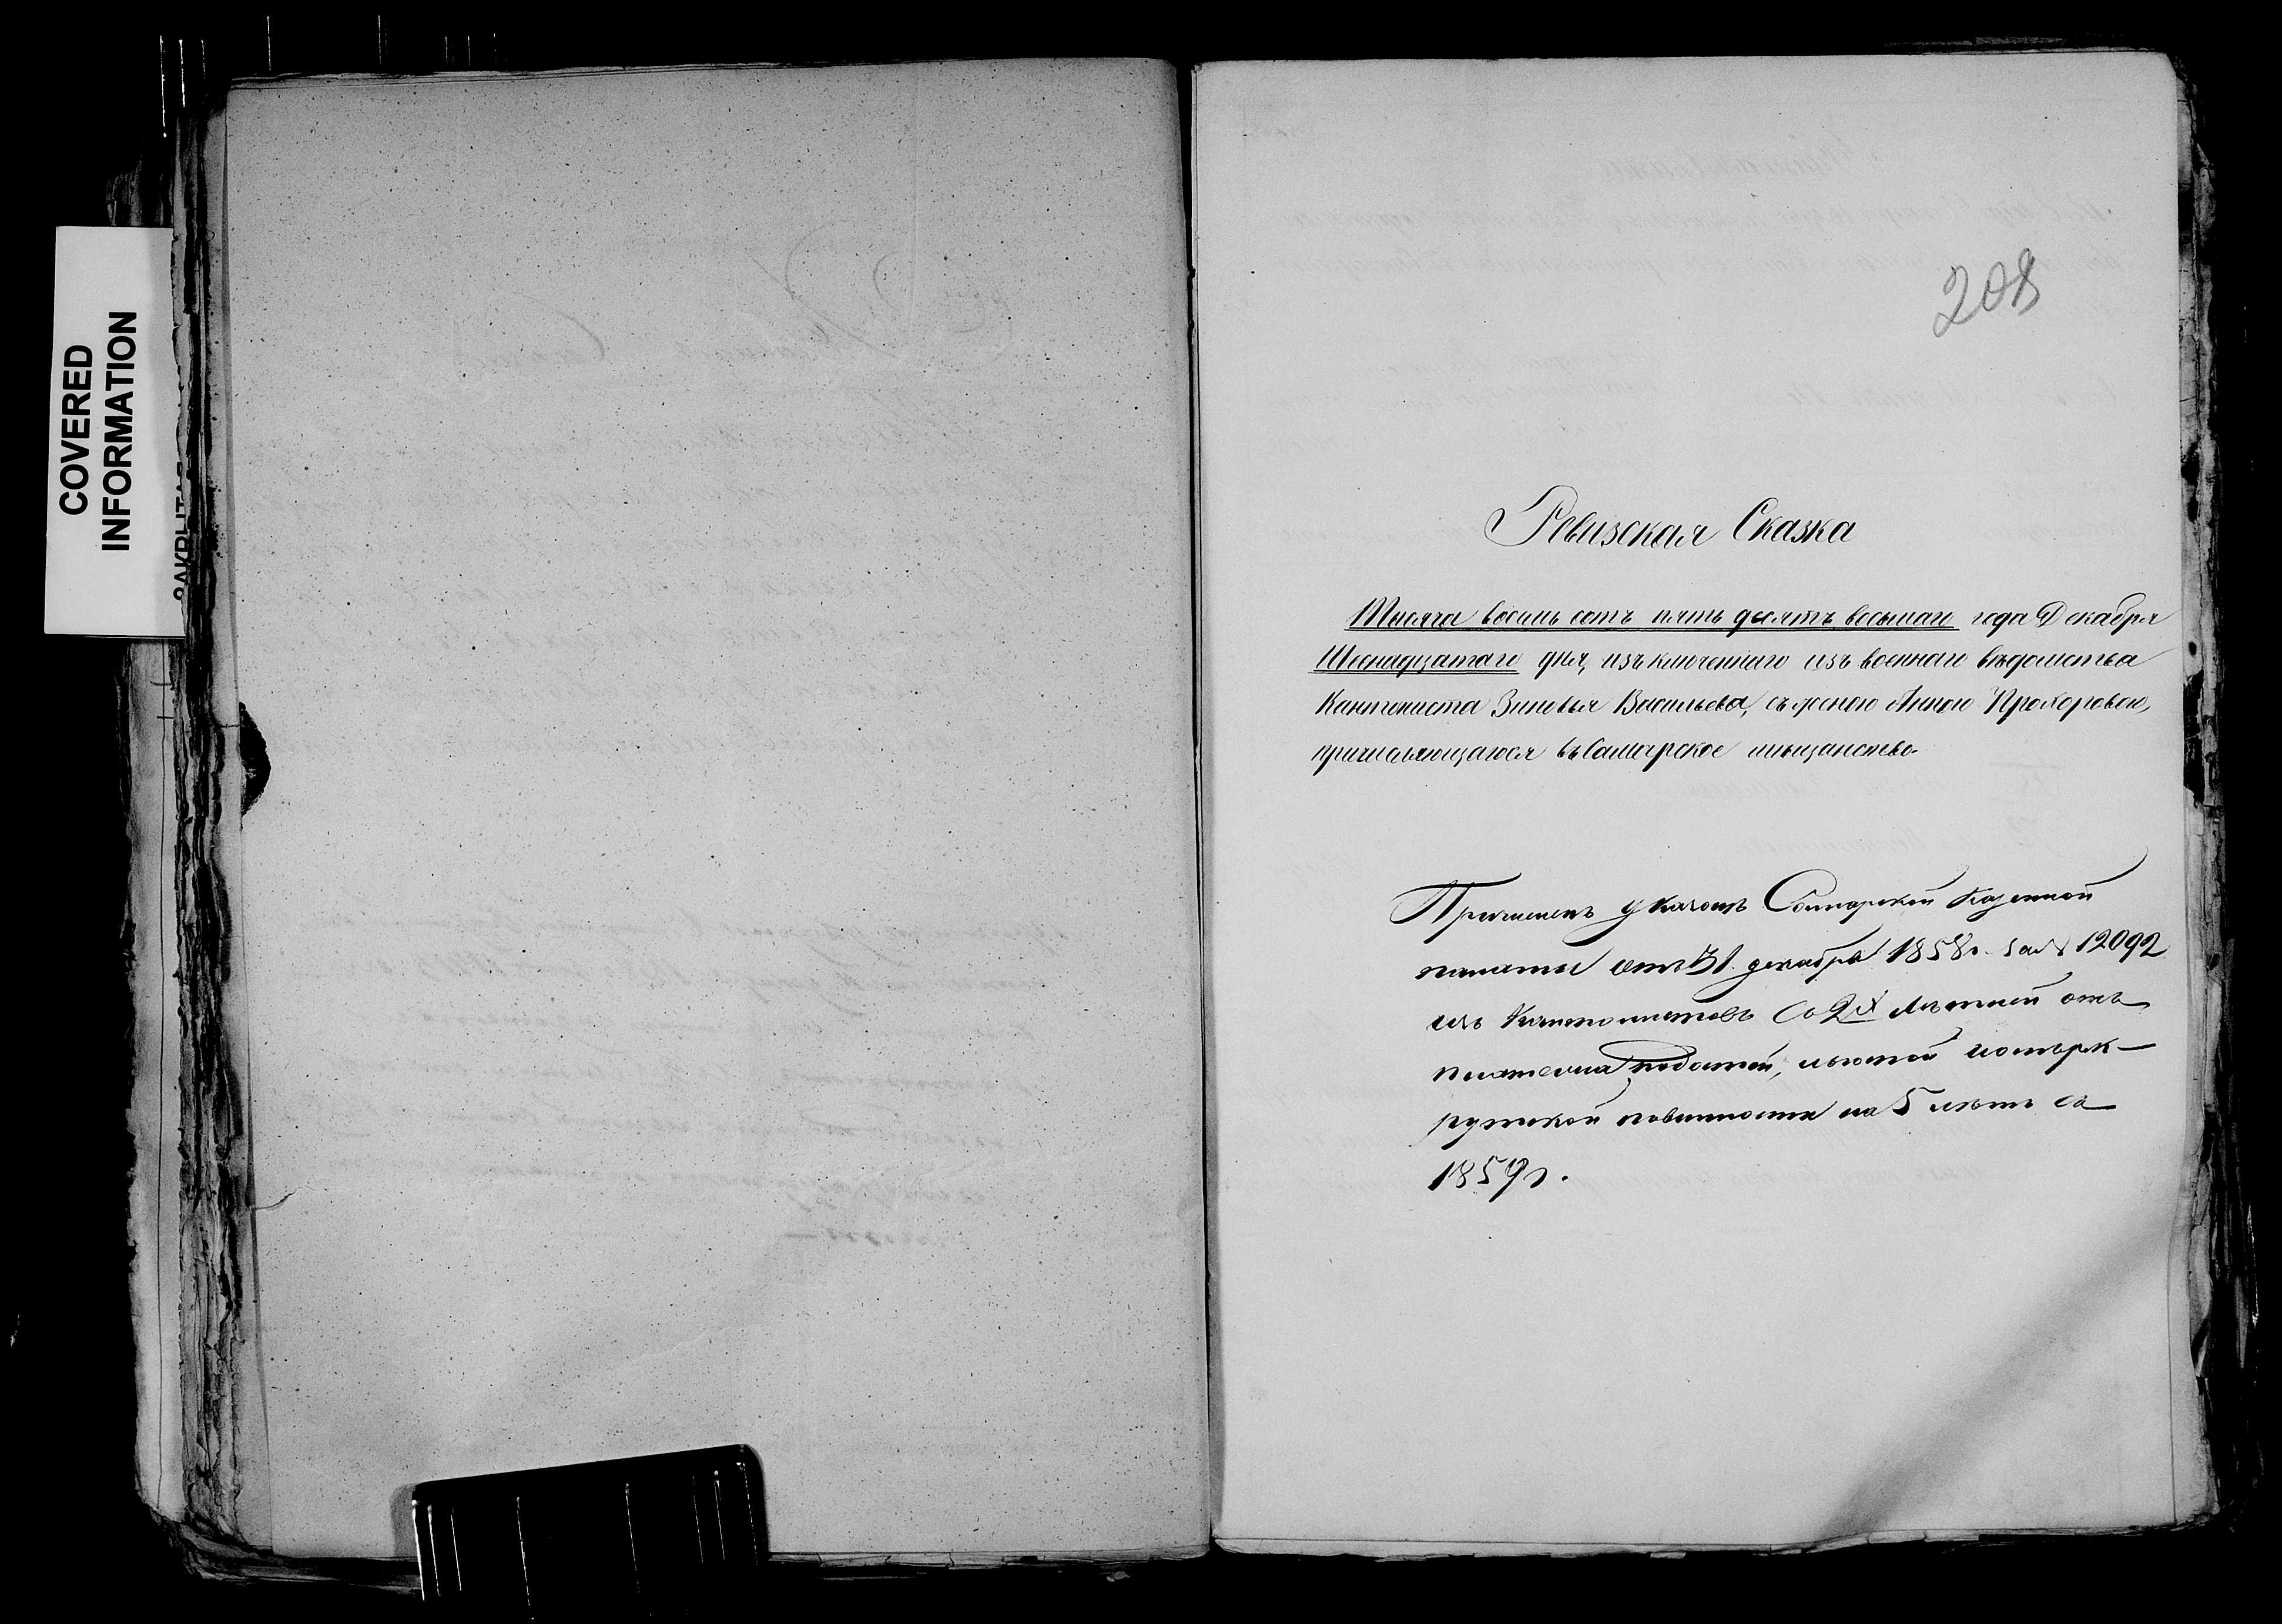 COVERED
INFORMATION
208
Ревизская Сказка
Тысяча восемь сотъ пять десятъ восьмаго года Декабря
Шеснадцатаго дня, изъключеннаго изъ военнаго вѣдомства
Кантониста Зиновья Васильева, съ женою Анною Прохоровою,
причисляющагося въ Самарское мѣщанство.
Причисленъ указомъ Самарской Казенной
палаты отъ 31 декабря 1858г. за № 12092
изъ Кантонистовъ со 2х лѣтней отъ
платежа податей, льготой и отъ рек-
рутской повинности на 5 лѣтъ съ
1859г.